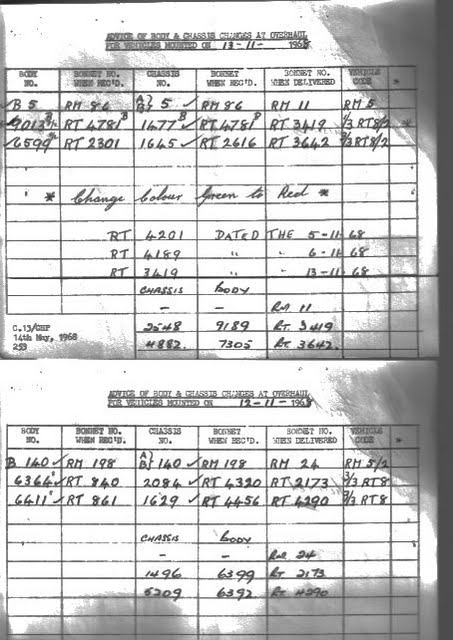 ADVICE OF BODY & CHASSIS CHANGES AT OVERHAUL
FOR VEHICLES MOUNTED ON 13-11- 1968
BODY NO. BONNET NO. WHEN REC'D. CHASSIS NO. BONNET WHEN REC'D. BONNET NO. WHEN DELIVERED VEHICLE CODE *
✓ B 5 RM 86 A) B) 5 ✓ RM 86 RM 11 RM 5
RT 4781 1477 ✓ RT 4781 RT 3419 1/3 RT8/2 *
6599 RT 2301 1645 ✓ RT 2616 RT 3642 2/3 RT8/2
* Change Colour Green to Red *
RT 4201 DATED THE 5-11-68
RT 4189 " " 6-11-68
RT 3419 " " 13-11-68
CHASSIS BODY
- - RM 11
2548 9189 RT. 3419
4882. 7305 RT. 3642.
C.13/GHP
14th May, 1968
253
ADVICE OF BODY & CHASSIS CHANGES AT OVERHAUL
FOR VEHICLES MOUNTED ON 12-11- 1968
BODY NO. BONNET NO. WHEN REC'D. CHASSIS NO. BONNET WHEN REC'D. BONNET NO. WHEN DELIVERED VEHICLE CODE *
B 140 ✓ RM 198 A) B) 140 ✓ RM 198 RM 24 RM 5/2
6364 ✓ RT 840 2084 ✓ RT 4320 RT 2173 3/3 RT8
6411 ✓ RT 861 1629 ✓ RT 4456 RT 4290 3/3 RT8
CHASSIS BODY
- - RM 24
1496 6399 RT. 2173
5209 6392 RT. 4290